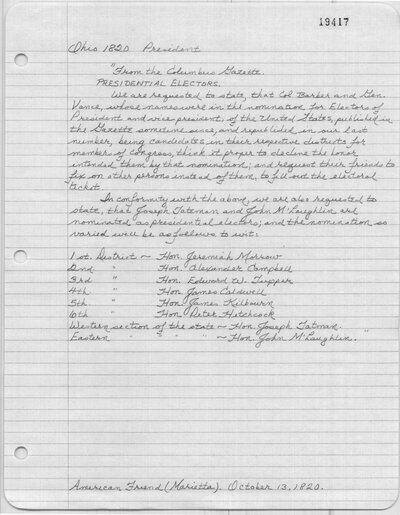 19417
Ohio 1820 President
"From the Columbus Gazette.
PRESIDENTIAL ELECTORS.
We are requested to state, that Col Barber and Gen.
Vance, whose names were in the nomination for Electors of
President and vice-president, of the United States, published in
the Gazette sometime since, and republished in our last
number, being candidates in their respective districts for
member of Congress, think it proper to decline the honor
intended them by that nomination; and request their friends to
fix on other persons instead of them, to fill out the electoral
ticket.
In conformity with the above, we are also requested to
state, that Joseph Tatman and John M'Laughlin are
nominated as presidential electors; and the nomination so
varied will be as follows to wit:
1 st. District ~ Hon. Jeremiah Morrow
2nd " Hon. Alexander Campbell
3rd " Hon. Edward W. Tupper
4th " Hon. James Caldwell
5th " Hon. James Kilbourn
6th " Hon. Peter Hitchcock
Western section of the state ~ Hon. Joseph Tatman.
Eastern " " " " ~ Hon. John M'Laughlin. "
American Friend (Marietta). October 13, 1820.